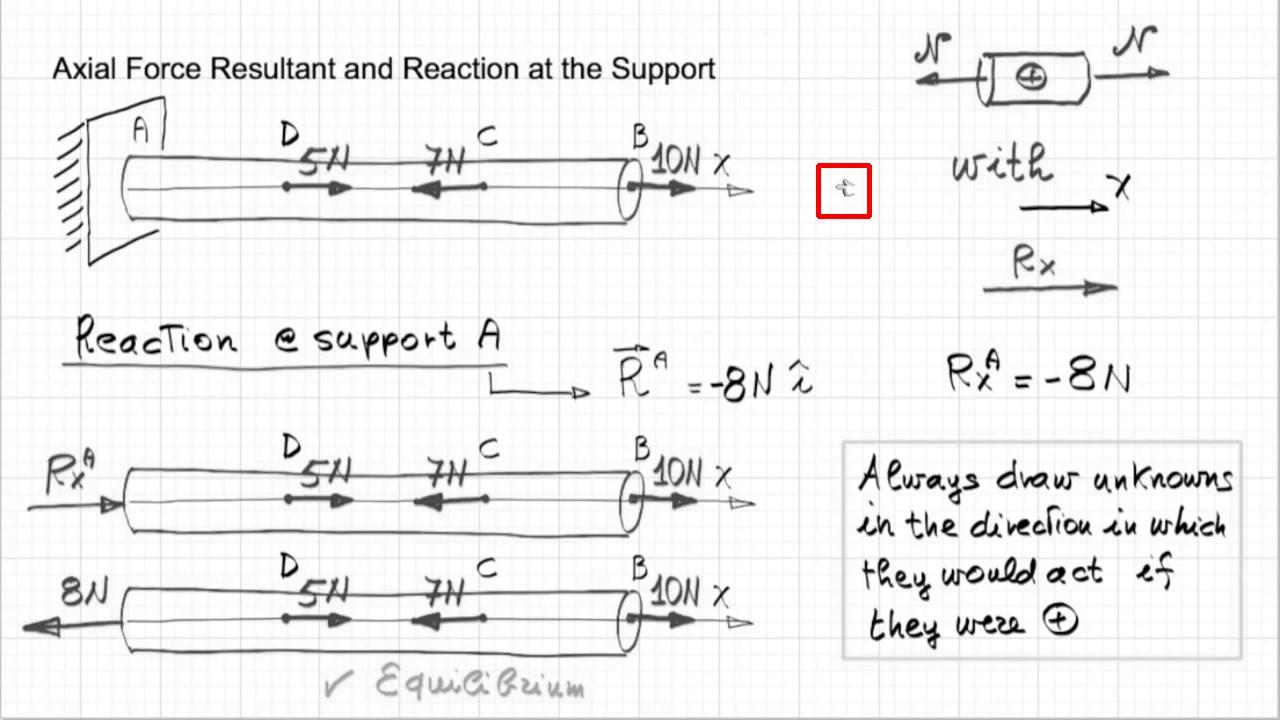 Axial Force Resultant and Reaction at the Support
N N
+
A D 5N 7N C B 10N x
with
x
Rx
Reaction @ support A
R^A = -8N î
Rx^A = -8N
Rx^A D 5N 7N C B 10N x
8N D 5N 7N C B 10N x
✓ Equilibrium
Always draw unknowns
in the direction in which
they would act if
they were ⊕